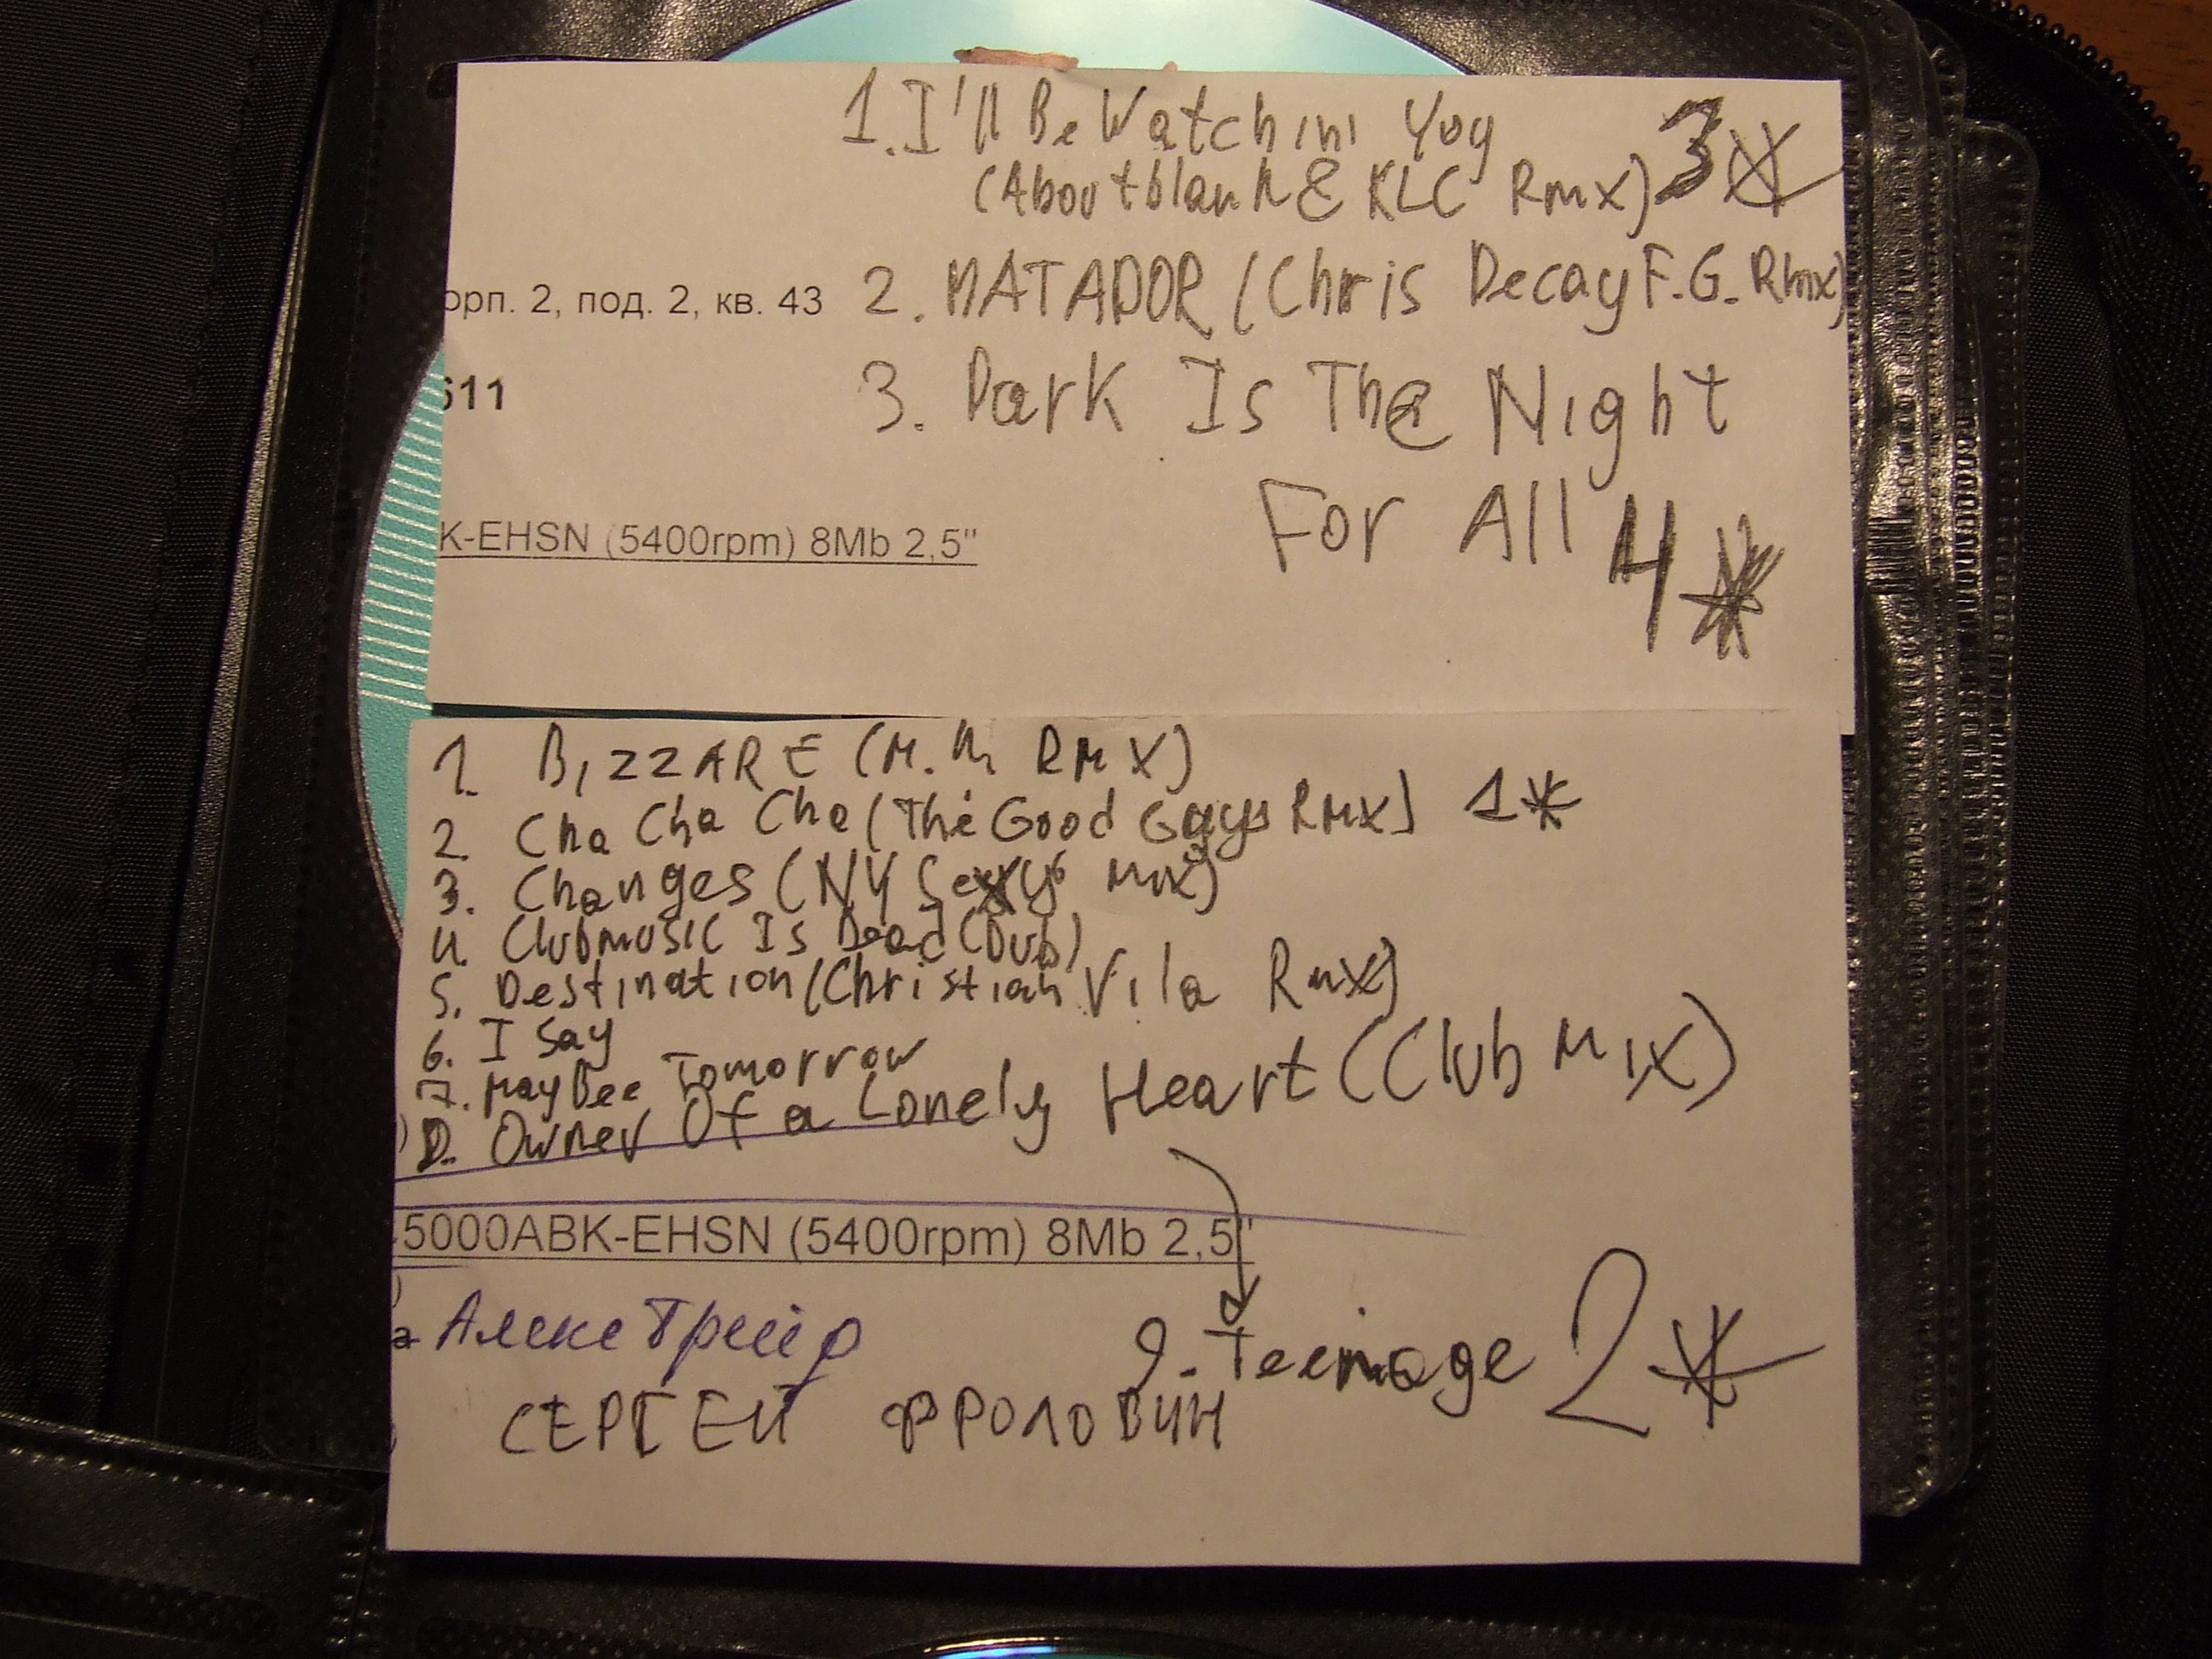 1. I'll Be Watchin' You
(Aboutblank & KLC Rmx) 3*
орп. 2, под. 2, кв. 43
2. MATADOR (Chris Decay F.G. Rmx)
611
3. Dark Is The Night
For All 4*
K-EHSN (5400rpm) 8Mb 2,5"
1. BIZZARE (M.M RMX)
2. Cha Cha Cha (The Good Guys RMX) 1*
3. Changes (NY Sexy Mix)
4. Clubmusic Is Dead (Dub)
5. Destination (Christian Vila Rmx)
6. I Say
7. MayBee Tomorrow
8. Owner Of a Lonely Heart (Club Mix)
5000ABK-EHSN (5400rpm) 8Mb 2,5"
9. Teenage 2*
АлексТрейд
СЕРГЕЙ ФРОЛОВИЧ